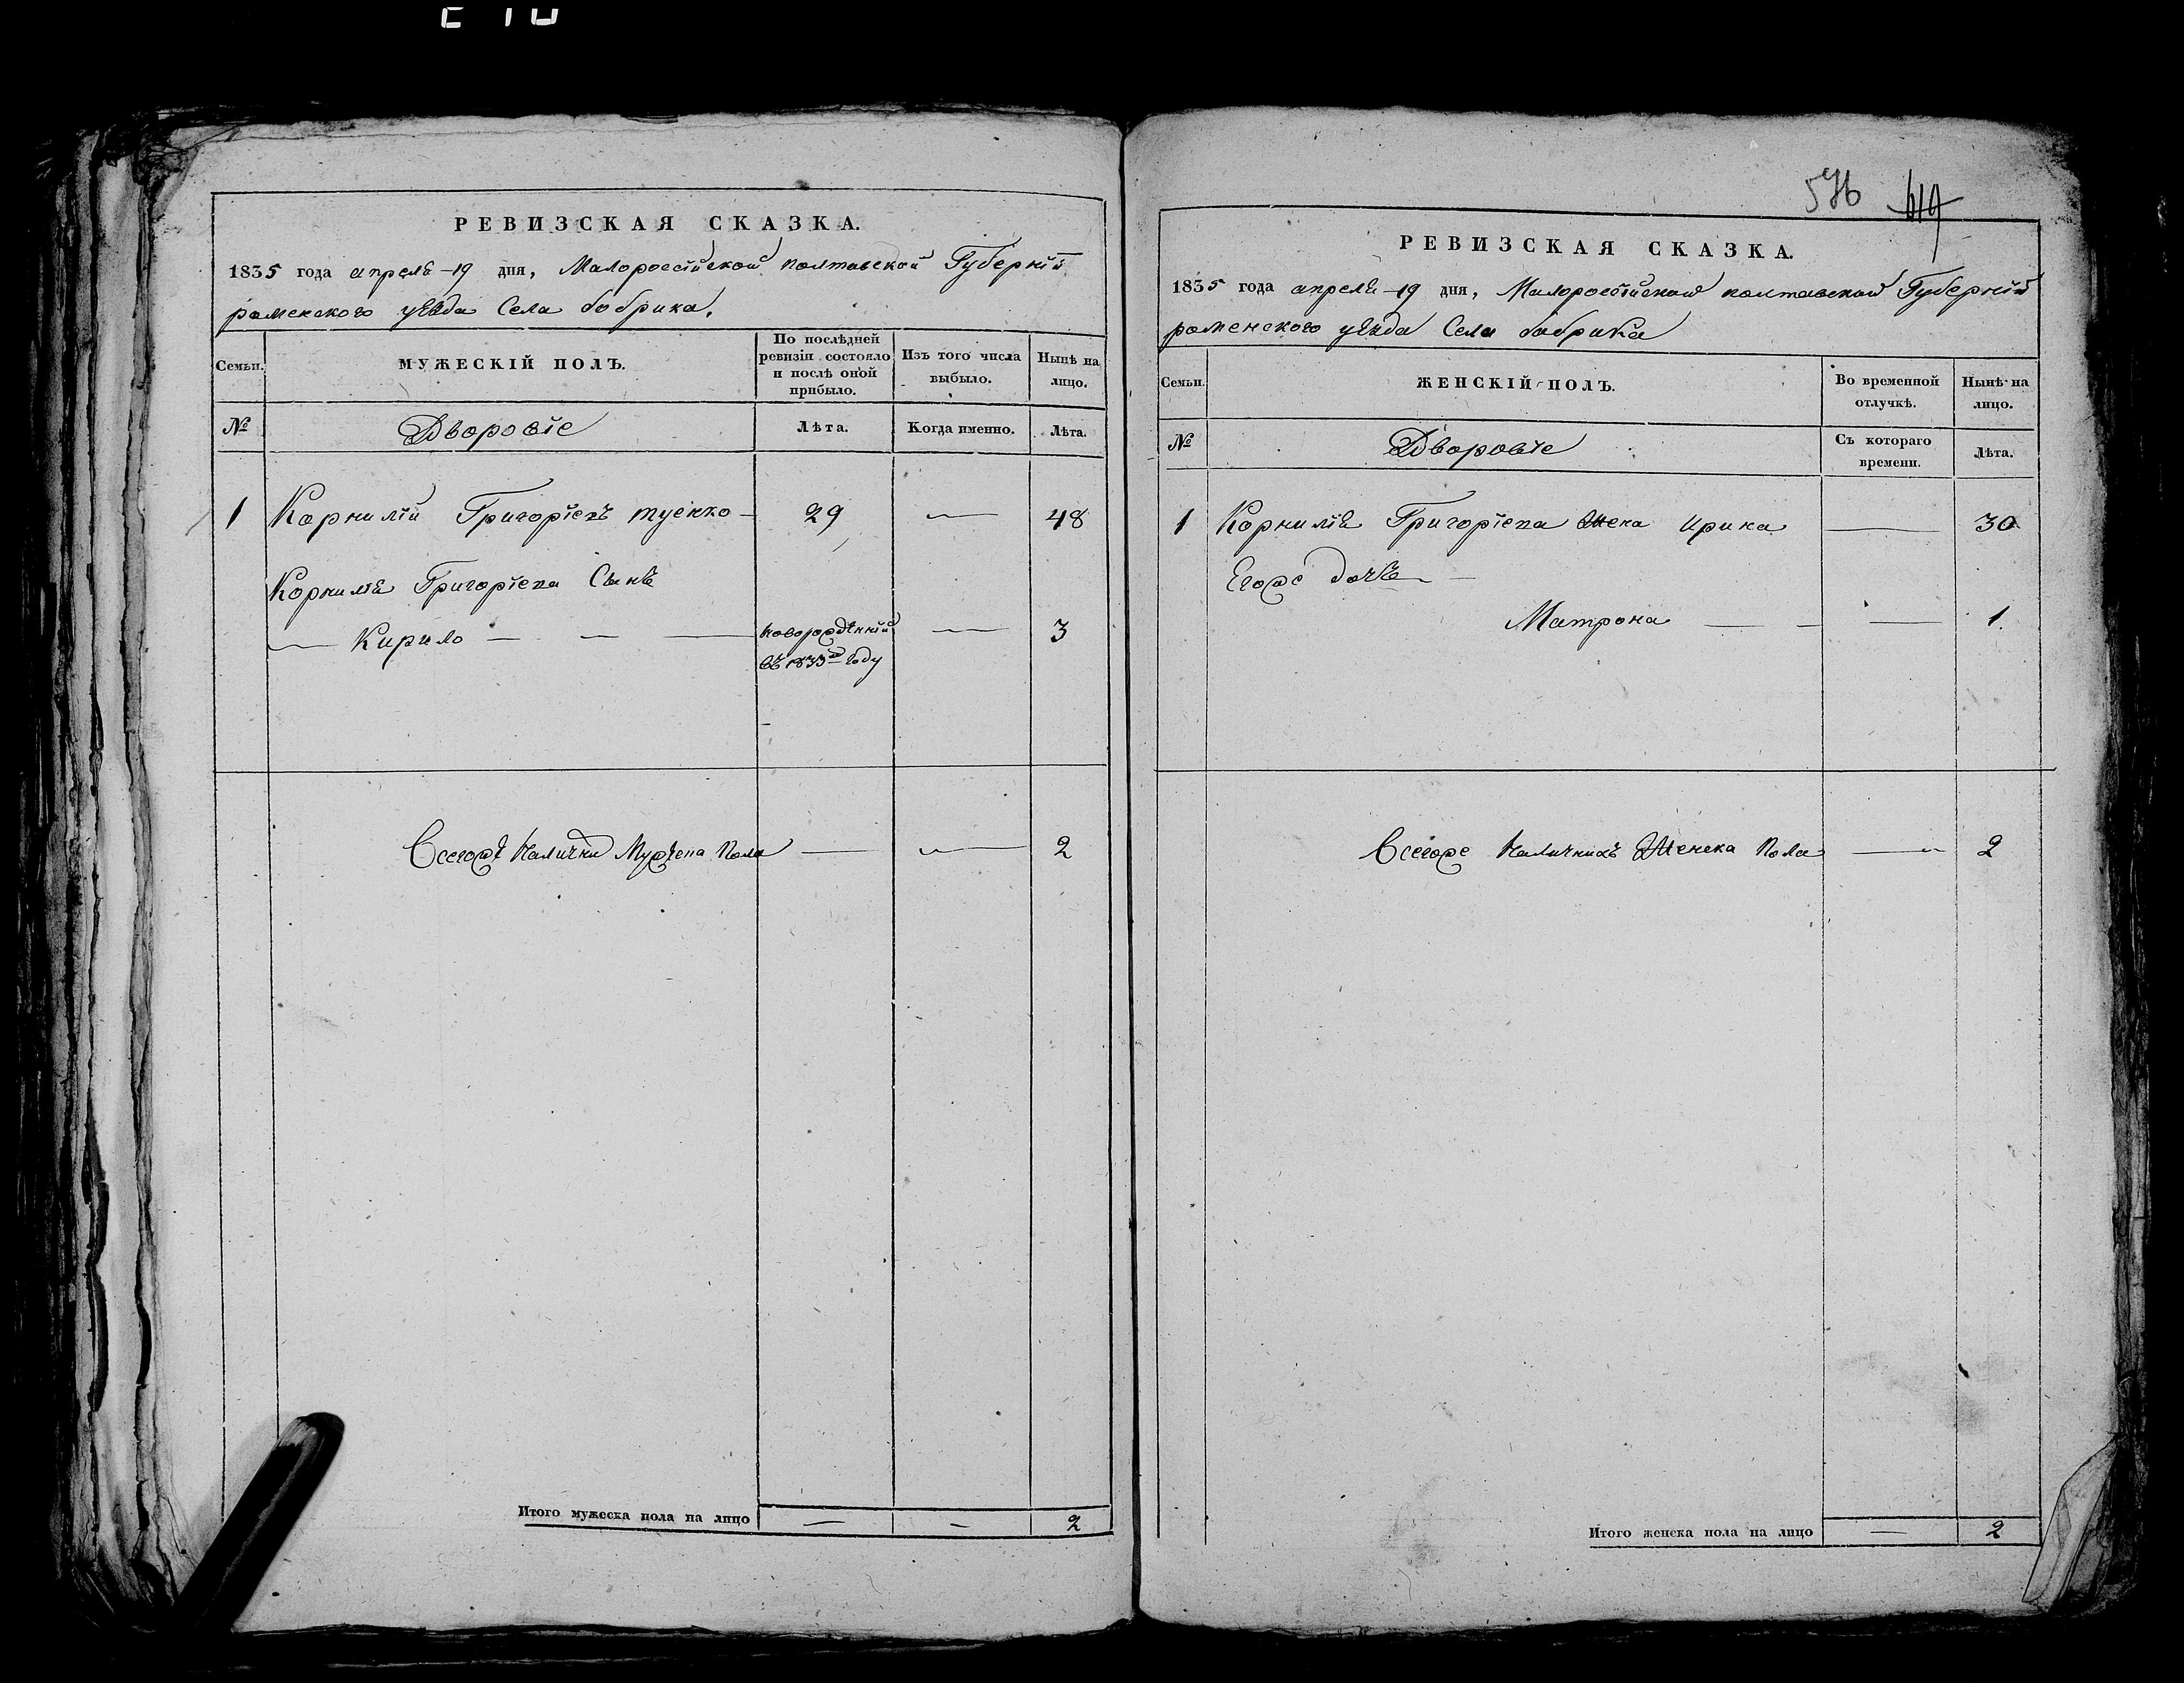 596 619
РЕВИЗСКАЯ СКАЗКА.
1835 года апреля -19 дня, Малоросійской полтавской Губерніи
роменского уѣзда Села бобрика.
Семьи.
МУЖЕСКІЙ ПОЛЪ.
По послѣдней ревизіи состояло и послѣ оной прибыло.
Изъ того числа выбыло.
Нынѣ на лицо.
№
Дворовіе
Лѣта.
Когда именно.
Лѣта.
1 Корнилій Григоріевъ 29 — 48
Корнилія Григоріева Сынъ
— Кирило — — — новорожденній — 3
въ 1833 году
Всегоже Налични Мужеска Пола — — 2
Итого мужеска пола на лицо — — 2
РЕВИЗСКАЯ СКАЗКА.
1835 года апреля -19 дня, Малоросійской полтавской Губерніи
роменского уѣзда Села бобрика
Семьи.
ЖЕНСКІЙ ПОЛЪ.
Во временной отлучкѣ.
Нынѣ на лицо.
№
Дворовіе
Съ котораго времени.
Лѣта.
1 Корнилія Григоріева Жена Ирина — 30
Егоже дочь —
Матрона — — — 1.
Всегоже Наличнихъ Женска Пола — 2
Итого женска пола на лицо — 2